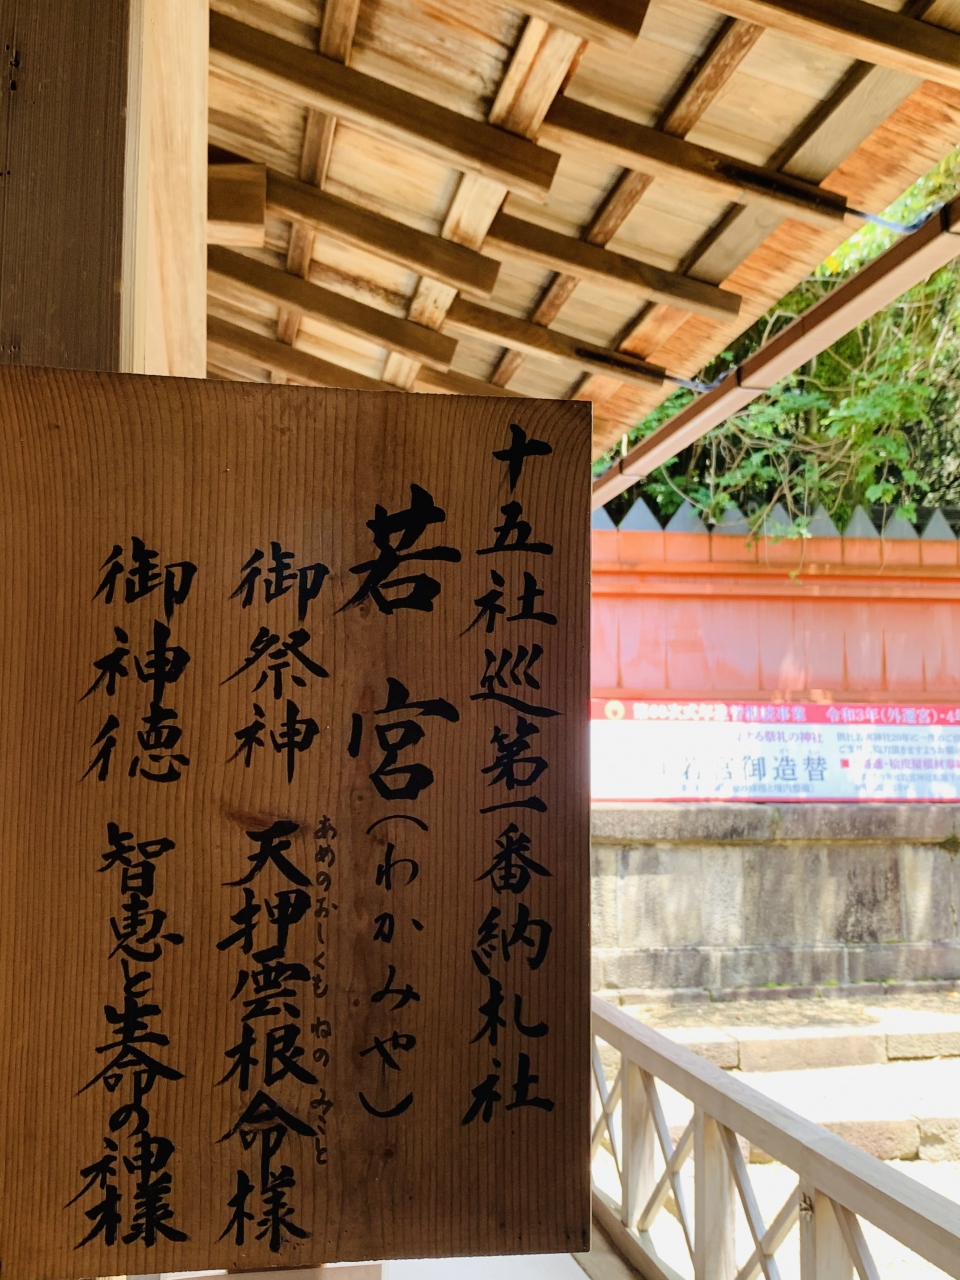 十五社巡第一番納札社
若宮(わかみや)
あめのおしくもねのみこと
御祭神 天押雲根命様
御神徳 智恵と生命の神様
令和3年(外遷宮)・4
る祭礼の神社
若宮御造替